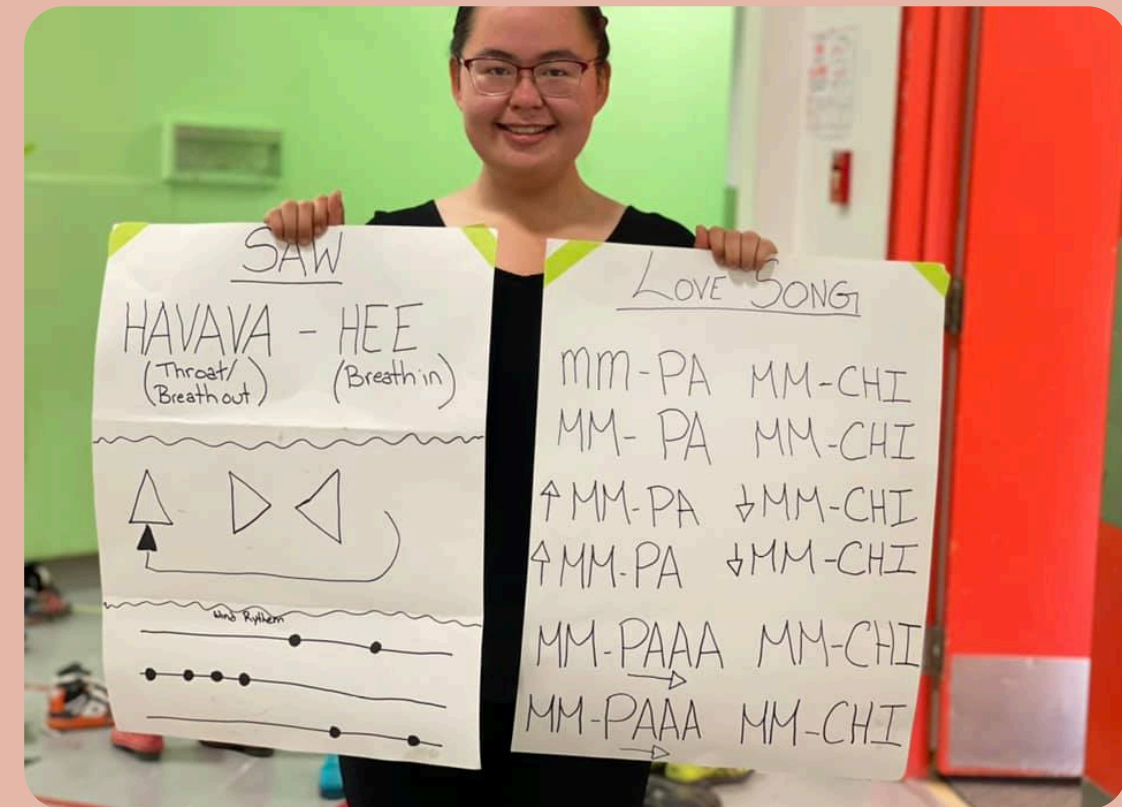 SAW
HAVAVA - HEE
(Throat/ (Breath in)
Breath out)
Wind Rythem
LOVE SONG
MM-PA MM-CHI
MM-PA MM-CHI
↑MM-PA ↓MM-CHI
↑MM-PA ↓MM-CHI
MM-PAAA MM-CHI
→
MM-PAAA MM-CHI
→